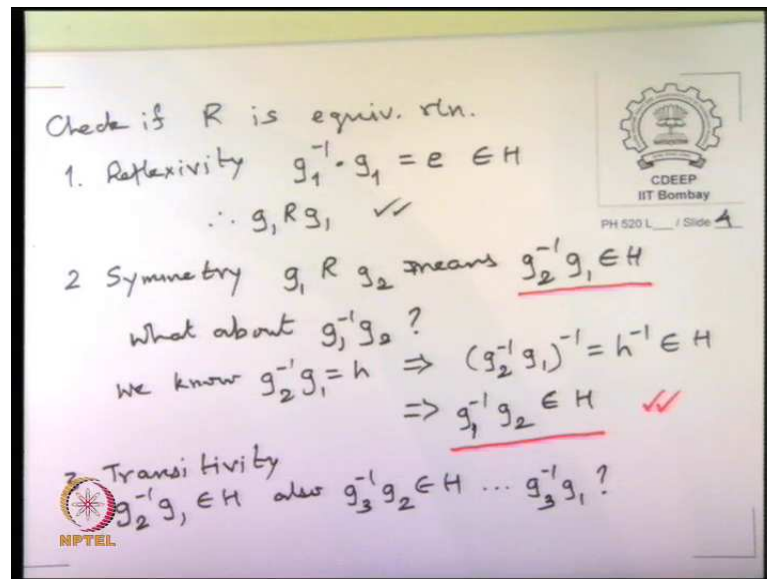 Check if R is equiv. rln.
1. Reflexivity g₁⁻¹ · g₁ = e ∈ H
∴ g₁ R g₁ ✓✓
CDEEP
IIT Bombay
PH 520 L___ / Slide 4
2 Symmetry g₁ R g₂ means g₂⁻¹ g₁ ∈ H
What about g₁⁻¹ g₂ ?
we know g₂⁻¹ g₁ = h ⇒ (g₂⁻¹ g₁)⁻¹ = h⁻¹ ∈ H
⇒ g₁⁻¹ g₂ ∈ H ✓✓
3 Transitivity
g₂⁻¹ g₁ ∈ H also g₃⁻¹ g₂ ∈ H ... g₃⁻¹ g₁ ?
NPTEL